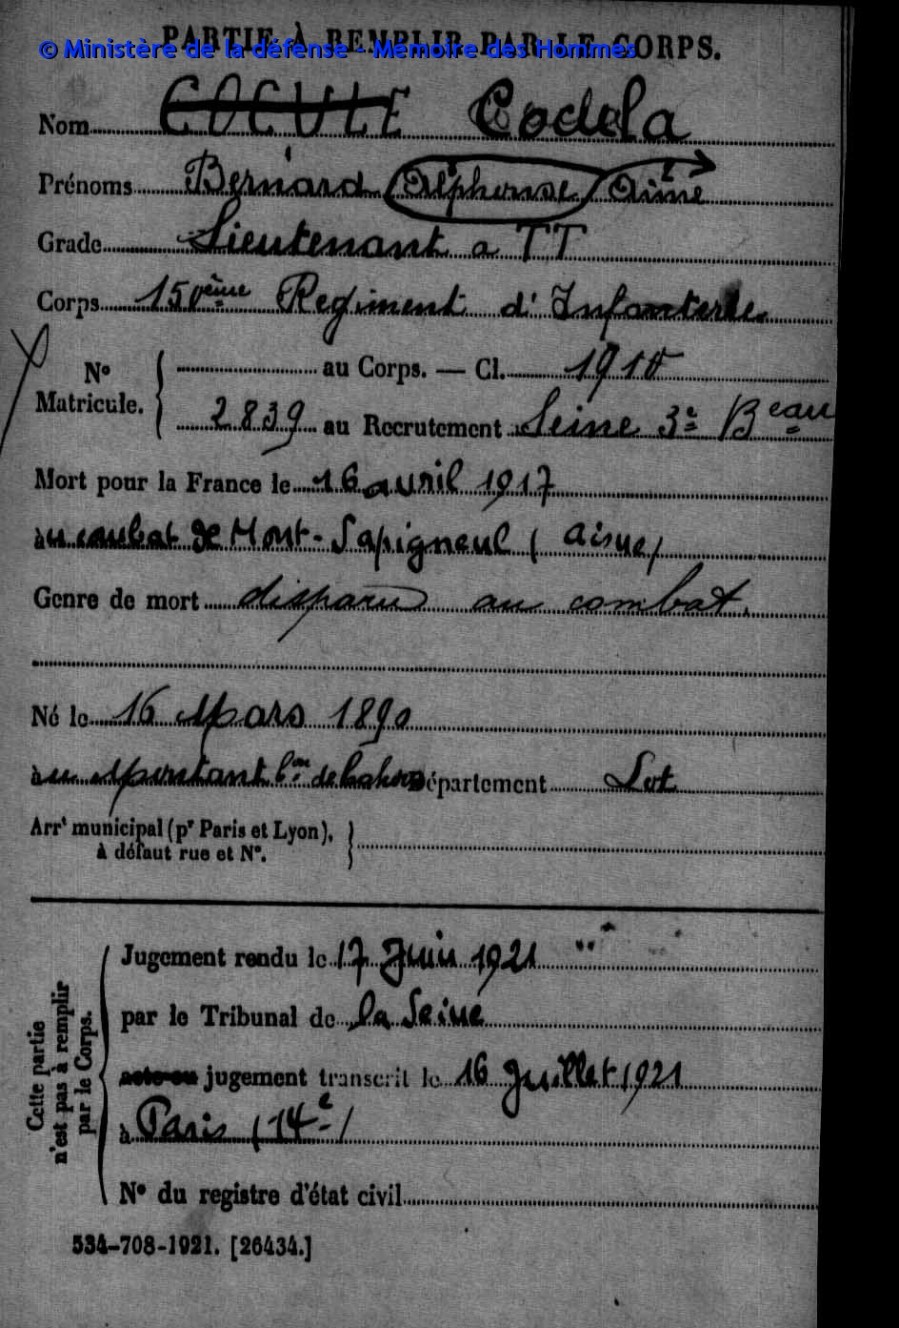 PARTIE À REMPLIR PAR LE CORPS.
© Ministère de la défense - Mémoire des Hommes
Nom COCULE Codela
Prénoms Bernard Alphonse Aimé
Grade Lieutenant a TT
Corps 150ème Regiment d'Infanterie
N° Matricule. au Corps. — Cl. 1910
2839 au Recrutement Seine 3e Beau
Mort pour la France le 16 avril 1917
au combat de Mont-Sapigneul (Aisne)
Genre de mort disparu au combat.
Né le 16 Mars 1890
au Montant Département Lot
Arrt municipal (pr Paris et Lyon),
à défaut rue et N°.
Cette partie n'est pas à remplir par le Corps.
Jugement rendu le 17 Juin 1921
par le Tribunal de la Seine
acte ou jugement transcrit le 16 Juillet 1921
à Paris (14e)
N° du registre d'état civil
534-708-1921. [26434.]